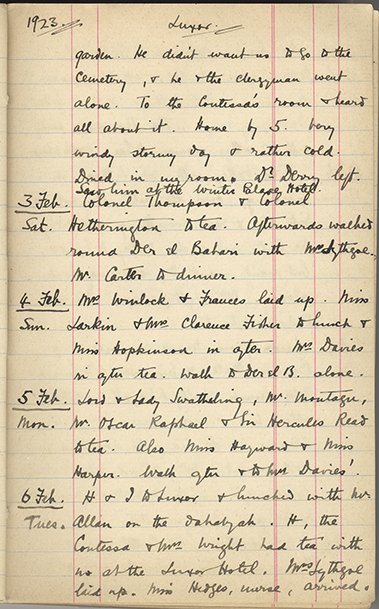 1923. Luxor.
garden. He didn't want us to go to the
Cemetery, & he & the clergyman went
alone. To the Contessa's room & heard
all about it. Home by 5. Very
windy stormy day & rather cold.
Dined in my room. Dr Derry left.
Saw him at the Winter Palace Hotel.
3 Feb. Colonel Thompson & Colonel
Sat. Hetherington to tea. Afterwards walked
round Der el Bahari with Mrs Lythgoe.
Mr. Carter to dinner.
4 Feb. Mrs Winlock & Frances laid up. Miss
Sun. Larkin & Mrs Clarence Fisher to lunch &
Miss Hopkinson in after. Mrs Davies
in after tea. Walk to Der el B. alone.
5 Feb. Lord & Lady Swathaling, Mr. Montagu,
Mon. Mr Oscar Raphael & Sir Hercules Read
to tea. Also Miss Hayward & Miss
Harper. Walk after & to Mrs Davies'.
6 Feb. H & I to Luxor & lunched with Mr
Tues. Allan on the dahabyah. H, the
Contessa & Mrs Wright had tea with
us at the Luxor Hotel. Mrs Lythgoe
laid up. Miss Hedges, nurse, arrived.